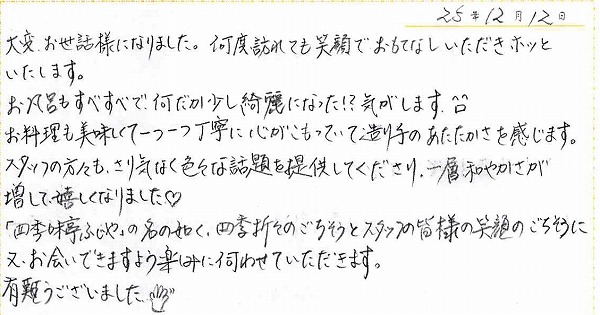 25年12月12日
大変、お世話様になりました。何度訪れても笑顔でおもてなしいただきホッと
いたします。
お風呂もすべすべで何だか少し綺麗になった!?気がします。^^
お料理も美味しくて一つ一つ丁寧に心がこもっていて造り手のあたたかさを感じます。
スタッフの方々も、さり気なく色々な話題を提供してくださり、一層和やかさが
増して、嬉しくなりました♡
「四季味亭ふじや」の名の如く、四季折々のごちそうとスタッフの皆様の笑顔のごちそうに
又、お会いできますよう楽しみに伺わせていただきます。
有難うございました